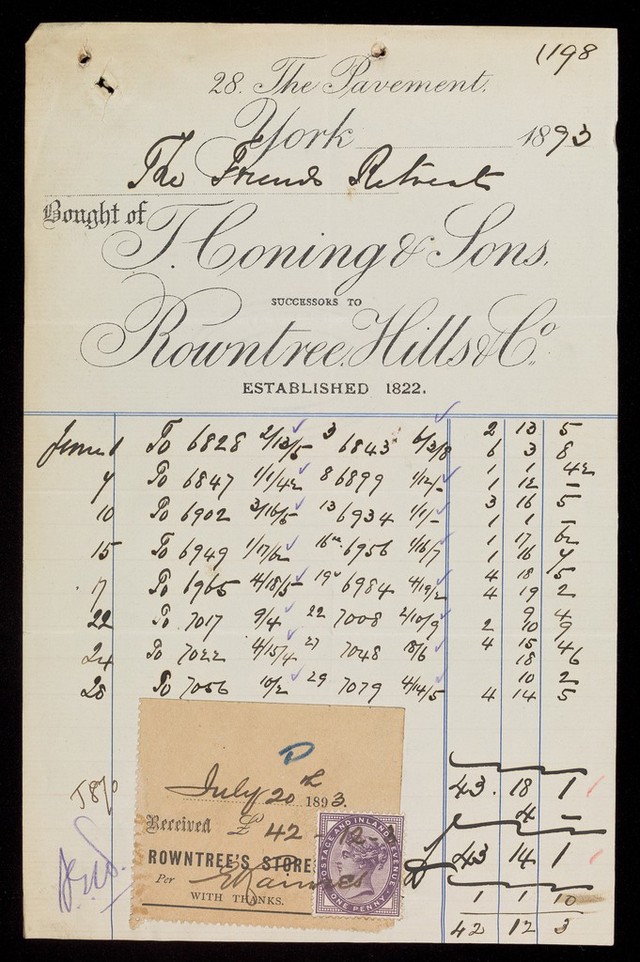 1198
28. The Pavement.
York 1893
The Friends Retreat
Bought of
T. Coning & Sons.
SUCCESSORS TO
Rowntree. Hills & Co.
ESTABLISHED 1822.
June 1 To 6828 2/13/5 3 6843 6/3/8 2 13 5
6 3 8
7 To 6847 1/1/4½ 8 6899 1/12/- 1 1 4½
1 12 -
10 To 6902 3/16/5 13 6934 1/1/- 3 16 5
1 1 -
15 To 6949 6956 1/16/7 1 17
1 16 7
17 To 6965 4/18/5 19 6984 4/19/2 4 18 5
4 19 2
22 To 7017 9/4 22 7008 2/10/9 9 4
2 10 9
24 To 7022 4/15/4 27 7048 18/6 4 15 4
18 6
28 To 7056 10/2 29 7079 4/14/5 10 2
4 14 5
43. 18 1
4 -
43 14 1
1 1 10
42 12 3
July 20th 1893.
Received £ 42 - 12 -
ROWNTREE'S STORE
Per
WITH THANKS.
POSTAGE AND INLAND REVENUE
ONE PENNY